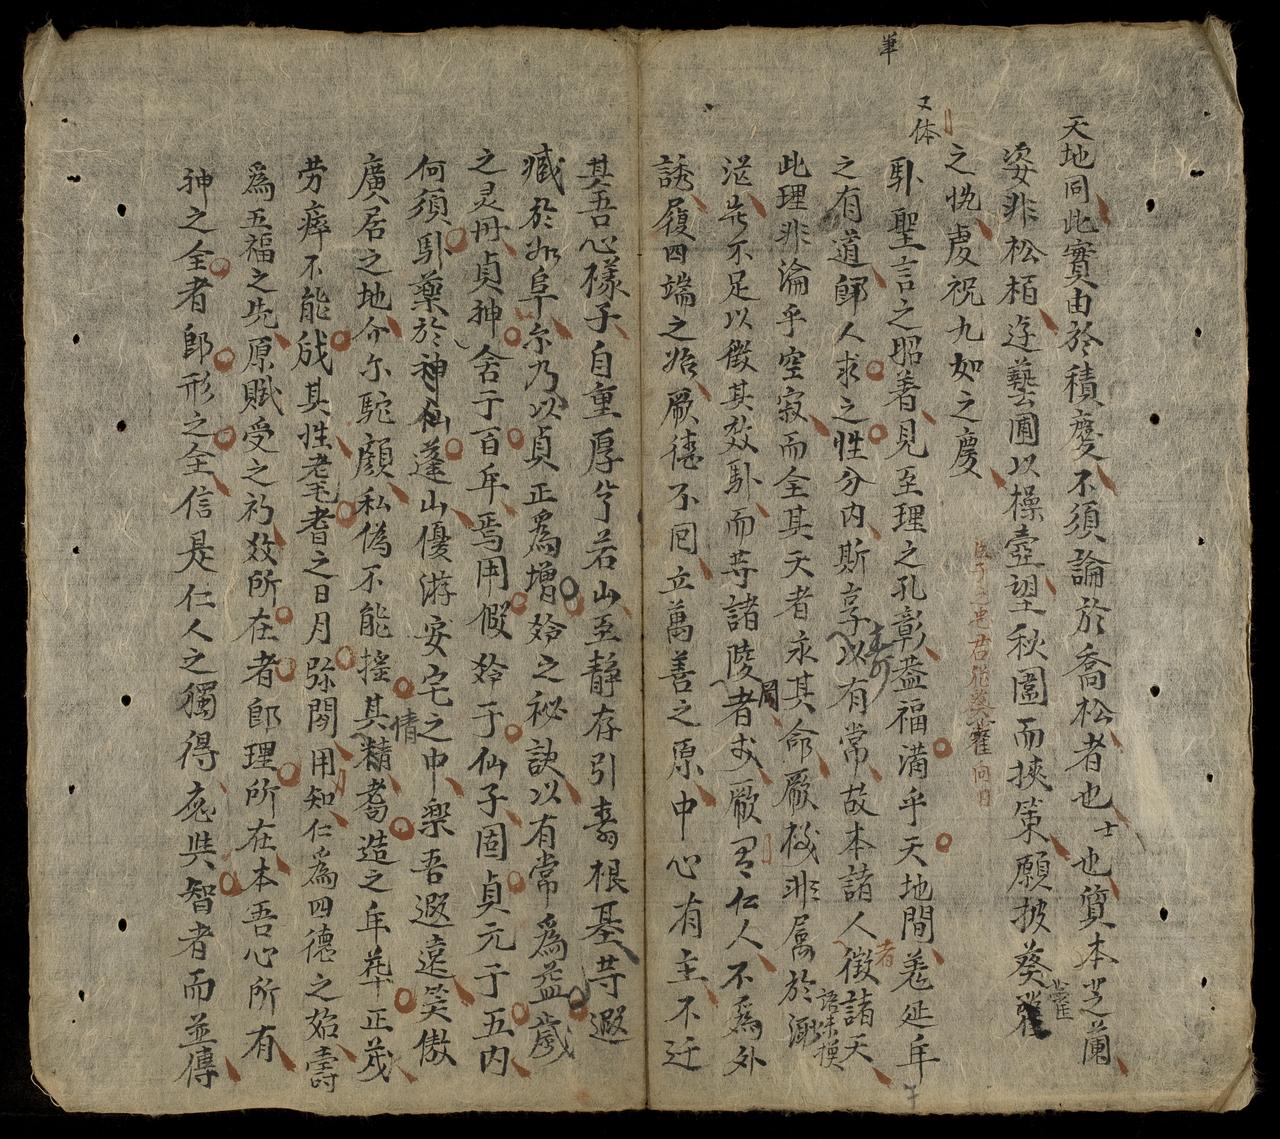 天地同此實由於積慶不須論於喬松者也士也質本芝蘭
姿非松栢遊藝圃以操壺望秋闈而挾策願披葵藿
之忱虔祝九如之慶
又体
卧聖言之昭著見至理之孔彰蓋福滿乎天地間羗延年
之有道歸人求之性分内斯享以有常故本諸人徵諸天
此理非淪乎空寂而全其天者永其命厥機非属於渺
茫岂不足以徵其效卧而等諸陵者或厥惟仁人不爲外
誘履四端之始厥德不回立萬善之原中心有主不迁
其吾心樣子自重厚兮若山至静存引壽根基等遐
臧於如阜尔乃以貞正爲增齡之祕訣以有常爲益歲
之灵丹貞神舍于百年焉用假齡于仙子固貞元于五内
何須卧藥於神仙蓬山優游安宅之中樂吾遐遠笑傲
廣居之地介尔駝顔私偽不能搖其精耆造之年華正茂
劳瘁不能戕其性老耄耆之日月弥閲用知仁爲四德之始壽
爲五福之先原賦受之初效所在者卽理所在本吾心所有
神之全者卽形之全信是仁人之獨得庞與智者而並傳